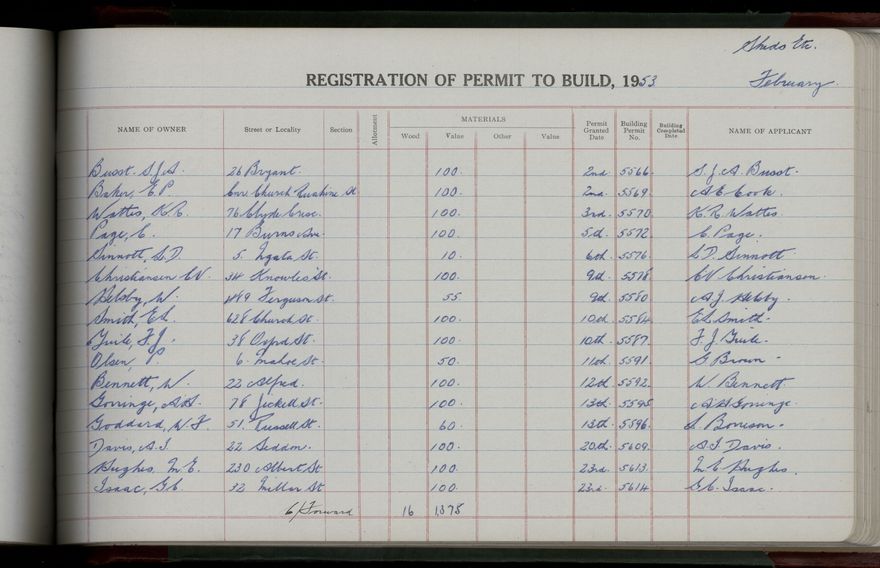 Sheds Etc.
REGISTRATION OF PERMIT TO BUILD, 1953
February
NAME OF OWNER Street or Locality Section Allotment MATERIALS Permit Granted Date Building Permit No. Building Completed Date NAME OF APPLICANT
Wood Value Other Value
Busst. S.J.A. 26 Bryant. 100. 2nd. 5566. S.J.A. Busst.
Baker, E.P. Cnr Church Ruahine St 100. 2nd. 5569. A.E. Cook.
Wattes, K.R. 76 Clyde Cresc. 100. 3rd. 5570. K.R. Wattes
Page, C. 17 Burns Ave. 100. 5th. 5572. C. Page.
Sinnott, L.D. 5. Ngata St. 10. 6th. 5576. L.D. Sinnott.
Christiansen C.V. 34 Knowles St. 100. 9th. 5578. C.V. Christiansen.
Helsby, W. 489 Ferguson St. 55. 9th. 5580. A.J. Helsby.
Smith, E.L. 628 Church St. 100. 10th. 5584. E.L. Smith.
Yuile, F.J. 38 Oxford St. 100. 10th. 5587. F.J. Yuile.
Olsen, P. 6. Mahoe St. 50. 11th. 5591. G. Brown.
Bennett, W. 22 Alfred. 100. 12th. 5592. W. Bennett
Gorringe, A.H. 78 Jickell St. 100. 13th. 5595 A.H. Gorringe.
Goddard, W.F. 51. Russell St. 60. 13th. 5596. S.
Davis, A.I. 22 Seddon. 100. 20th. 5609. A.I. Davis.
Hughes, M.E. 230 Albert St 100. 23rd. 5613. M.E. Hughes.
Isaac, G.C. 32 Millar St 100. 23rd. 5614. G.C. Isaac.
C/Forward 16 1,375